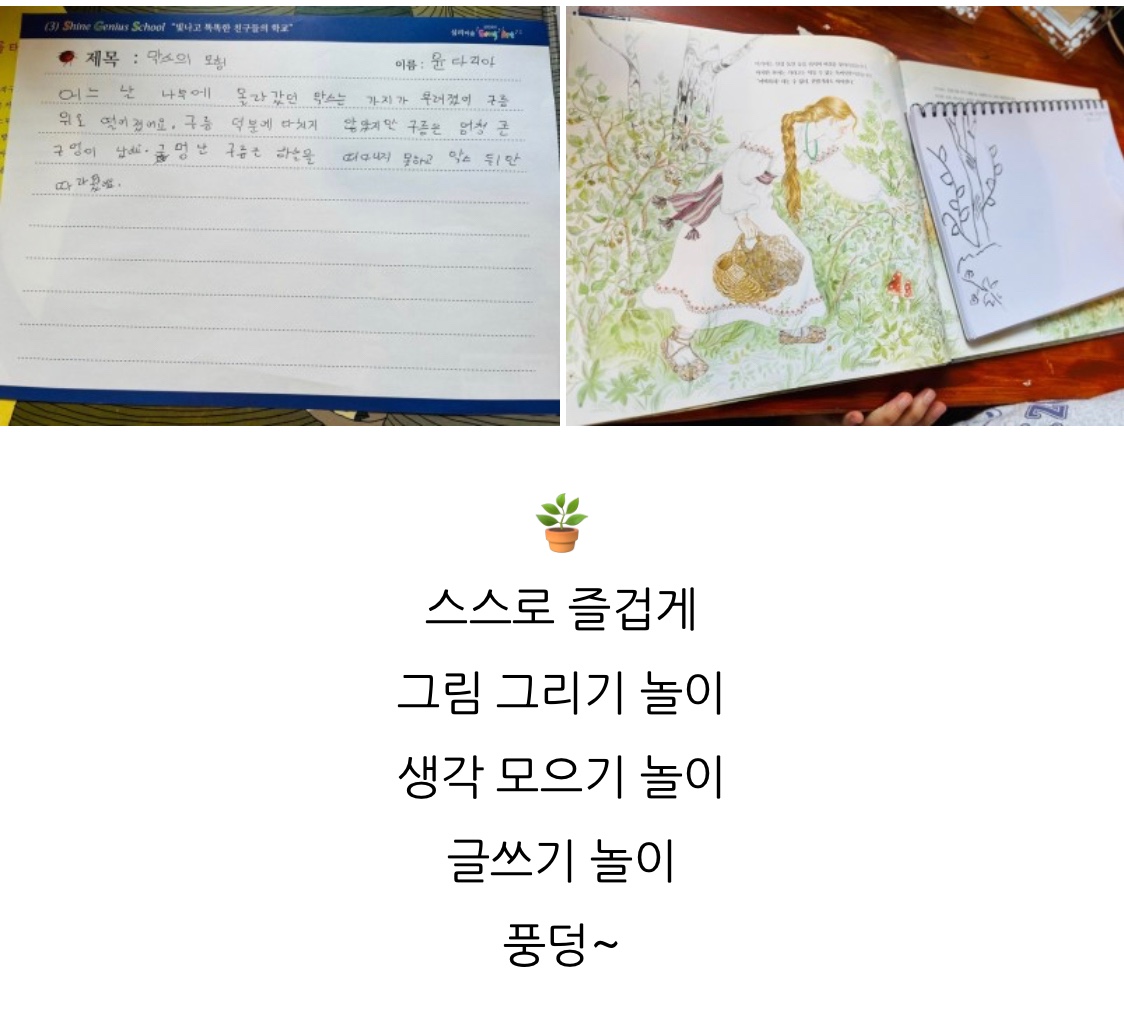 (3) Shine Genius School "빛나고 똑똑한 친구들의 학교"
제목 : 막스의 모험
이름 : 윤다리아
어느 날 나무에 올라갔던 막스는 가지가 부러졌어 구름
위로 떨어졌어요. 구름 덕분에 다치지 않았지만 구름은 엄청 큰
구멍이 났어. 구멍 난 구름은 하늘을 떠다니지 못하고 막스 뒤만
따라왔어요.
스스로 즐겁게
그림 그리기 놀이
생각 모으기 놀이
글쓰기 놀이
풍덩~